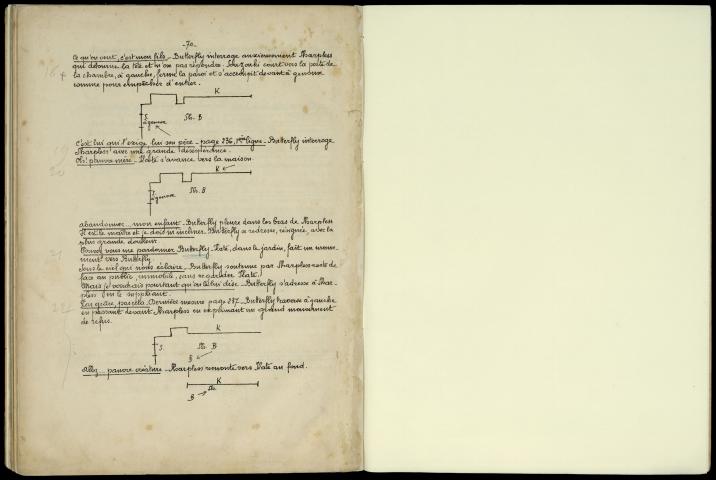 -70-
Ce qu'on veut, c'est mon fils - Butterfly interroge anxieusement Sharpless
qui détourne la tête et n'ose pas répondre. Souzouki court vers la porte de
la chambre, à gauche, ferme la paroi et s'accroupit devant à genoux
comme pour empêcher d'entrer.
K
S.
à genoux
Sh. B
C'est lui qui l'exige lui son père - page 236, 1ère ligne - Butterfly interroge
Sharpless avec une grande désespérance.
Oh! pauvre mère - Kate s'avance vers la maison.
K
S.
à genoux
Sh. B
abandonner... mon enfant - Butterfly pleure dans les bras de Sharpless
Il est le maître et je dois m'incliner. Butterfly se redresse, résignée, avec la
plus grande douleur.
Pouvez vous me pardonner Butterfly - Kate, dans le jardin, fait un mouve-
ment vers Butterfly.
Sous le ciel qui nous éclaire - Butterfly soutenue par Sharpless reste de
face au public, immobile, sans regarder Kate.
Mais je voudrais pourtant qu'on le lui dise - Butterfly s'adresse à Shar-
pless en le suppliant.
Par grâce, pas cela - Dernière mesure page 237 - Butterfly traverse à gauche
en passant devant Sharpless en exprimant un grand mouvement
de refus.
K
S.
Sh. B
B
Allez... pauvre créature - Sharpless remonte vers Kate au fond.
K
Sh.
B